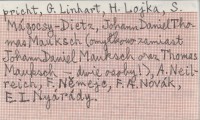 pricht, G. Linhart, H. Lojka, S.
Mágocsy-Dietz, Johann Daniel Tho-
mas Mauksch (omyłkowo zamiast
Johann Daniel Mauksch oraz Thomas
Mauksch → dwie osoby!), A. Neil-
reich, F. Němejc, F. A. Novák,
E. I. Nyárády.